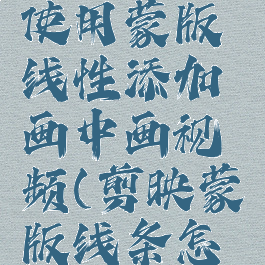 使用蒙版
线性添加
画中画视
频(剪映蒙
版线条怎